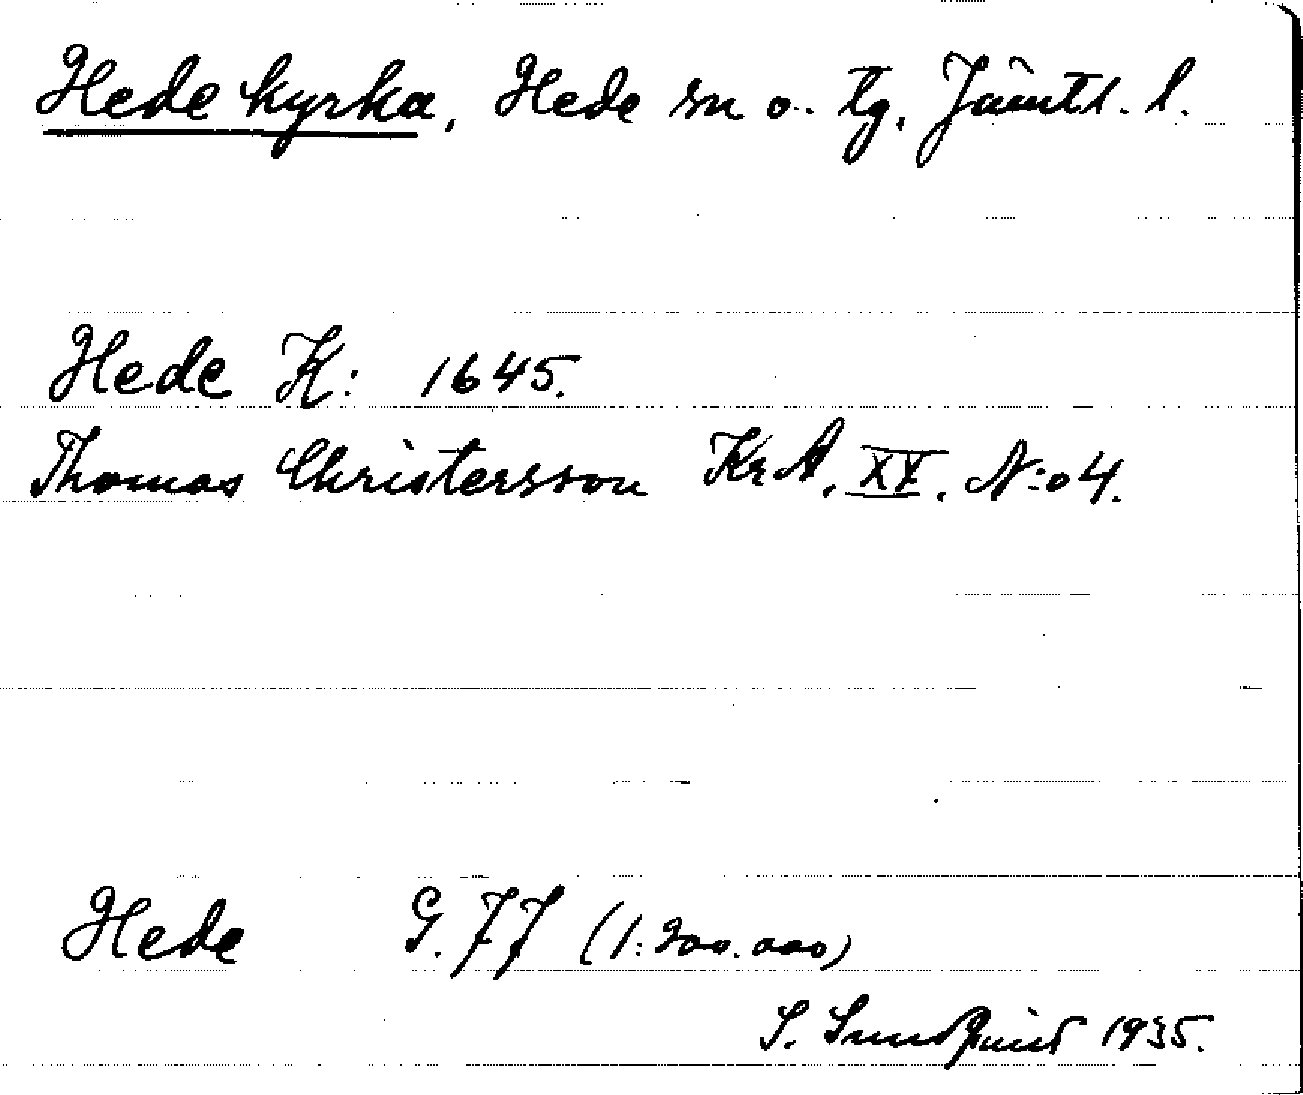 Hede kyrka, Hede sn o. tg. Jämtl. l.
Hede K: 1645.
Thomas Christersson Kr A. XV. N:o 4.
Hede G. 77 (1:200.000)
S. Sundquist 1935.